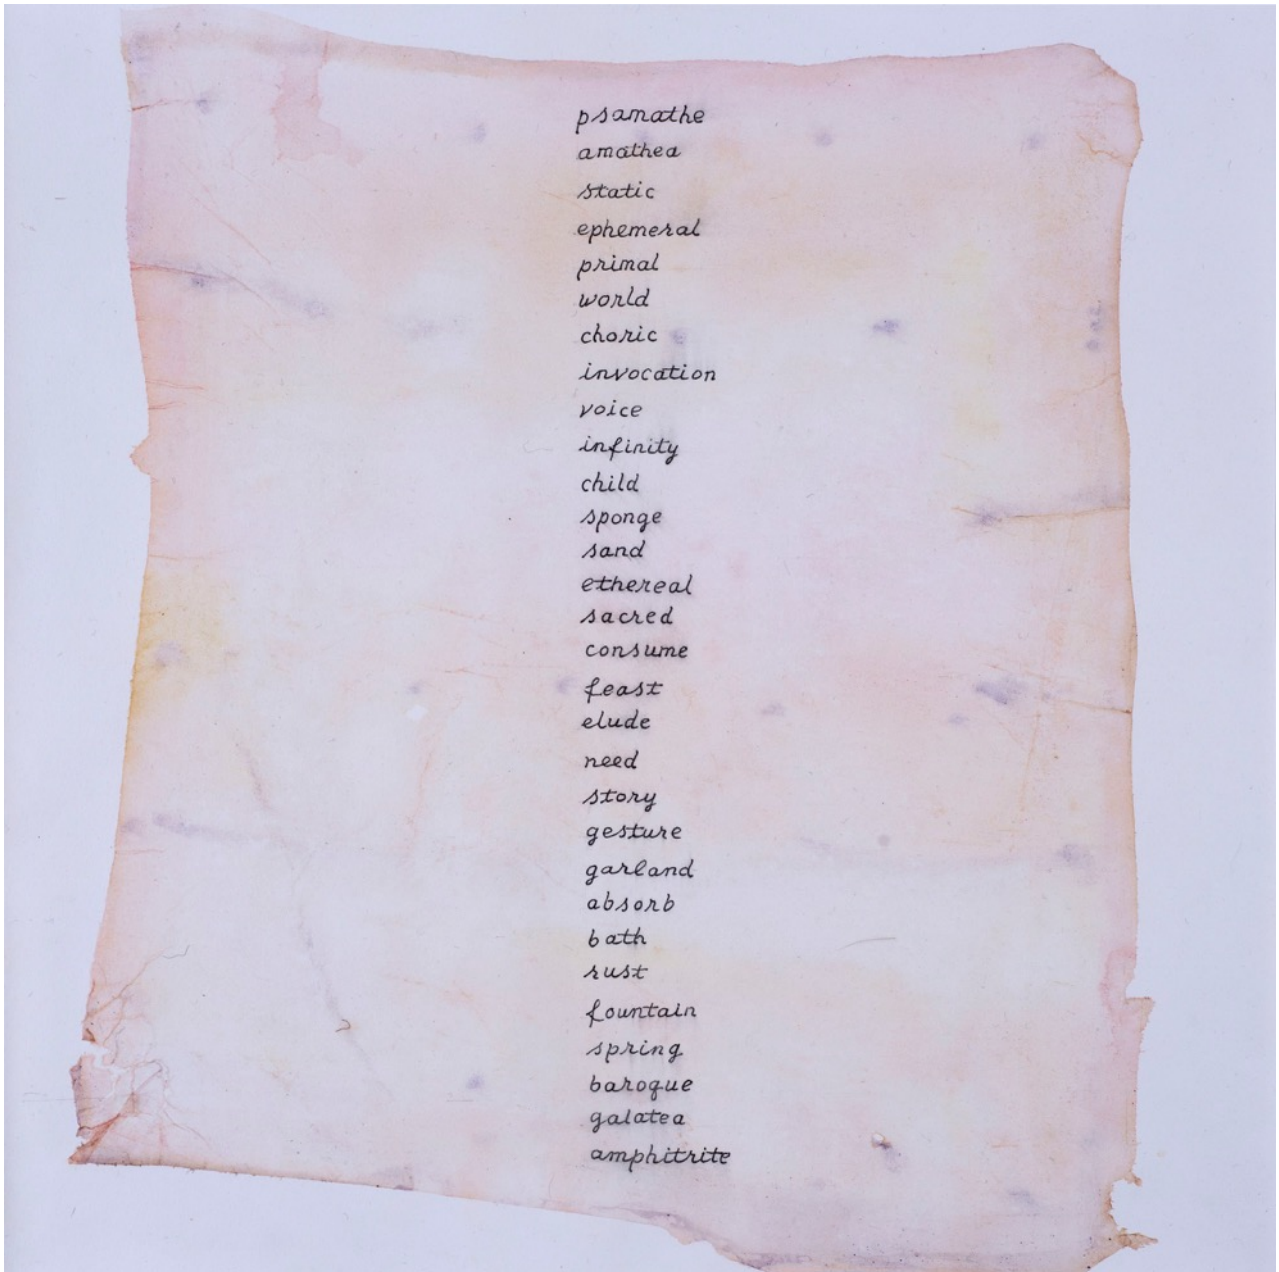 psamathe
amathea
static
ephemeral
primal
world
choric
invocation
voice
infinity
child
sponge
sand
ethereal
sacred
consume
feast
elude
need
story
gesture
garland
absorb
bath
rust
fountain
spring
baroque
galatea
amphitrite